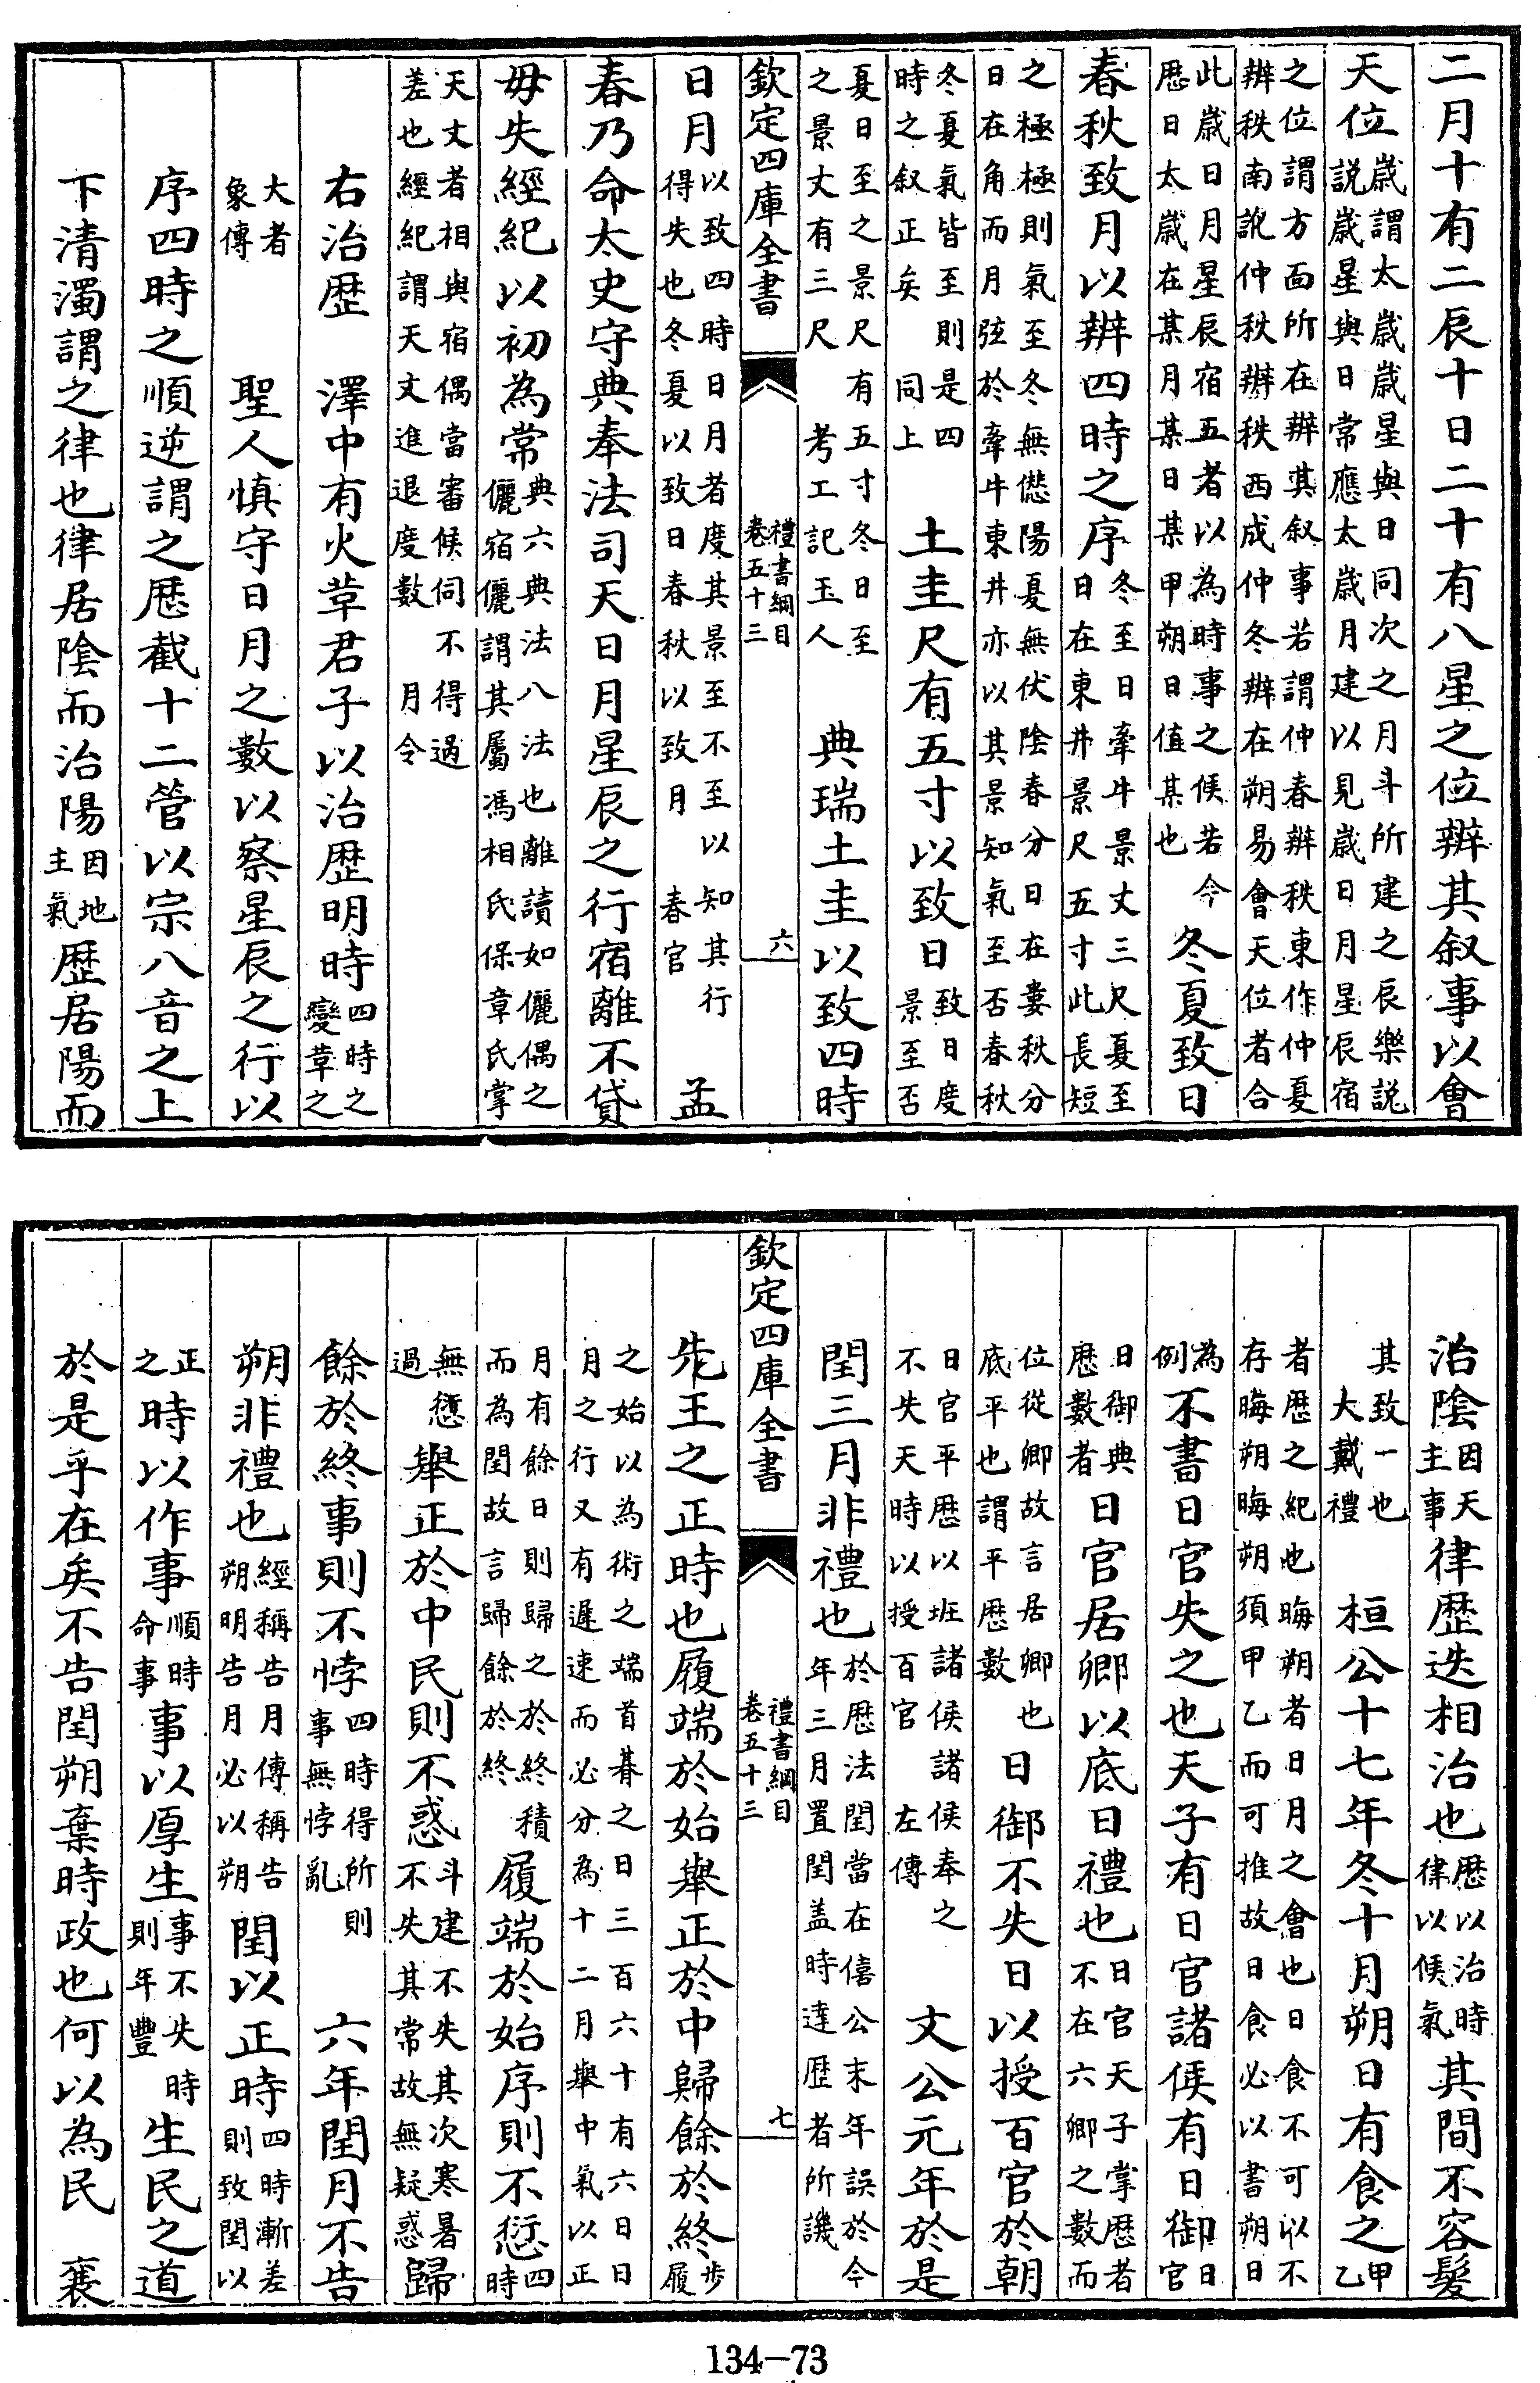 二月十有二辰十日二十有八星之位辨其叙事以會
天位歳謂太歳歳星與日同次之月斗所建之辰樂説
説歳星與日常應太歳月建以見歳日月星辰宿
之位謂方面所在辨其叙事若謂仲春辨秩東作仲夏
辨秩南訛仲秋辨秩西成仲冬辨在朔易會天位者合
此歳日月星辰宿五者以為時事之候若今
歴日太歳在某月某日某甲朔日值某也 冬夏致日
春秋致月以辨四時之序冬至日牽牛景丈三尺夏至
日在東井景尺五寸此長短
之極極則氣至冬無愆陽夏無伏陰春分日在婁秋分
日在角而月弦於牽牛東井亦以其景知氣至否春秋
冬夏氣皆至則是四
時之叙正矣 同上 土圭尺有五寸以致日致日度
景至否
夏日至之景尺有五寸冬日至
之景丈有三尺 考工記玉人 典瑞土圭以致四時
欽定四庫全書 禮書綱目 卷五十三 六
日月以致四時日月者度其景至不至以知其行
得失也冬夏以致日春秋以致月 春官 孟
春乃命太史守典奉法司天日月星辰之行宿離不貸
毋失經紀以初為常典六典法八法也離讀如儷偶之
儷宿儷謂其屬馮相氏保章氏掌
天文者相與宿偶當審候伺不得過
差也經紀謂天文進退度數 月令
右治歴 澤中有火革君子以治歴明時四時之
變革之
大者
象傳 聖人慎守日月之數以察星辰之行以
序四時之順逆謂之歴截十二管以宗八音之上
下清濁謂之律也律居陰而治陽因地
主氣歴居陽而
治陰因天
主事律歴迭相治也歴以治時
律以候氣其間不容髮
其致一也
大戴禮 桓公十七年冬十月朔日有食之甲
乙
者歴之紀也晦朔者日月之會也日食不可以不
存晦朔晦朔須甲乙而可推故日食必以書朔日
為
例不書日官失之也天子有日官諸侯有日御日
官
日御典
歴數者日官居卿以底日禮也日官天子掌歴者
不在六卿之數而
位從卿故言居卿也
底平也謂平歴數 日御不失日以授百官於朝
日官平歴以班諸侯諸侯奉之
不失天時以授百官 左傳 文公元年於是
閏三月非禮也於歴法閏當在僖公末年誤於今
年三月置閏盖時達歴者所譏
欽定四庫全書 禮書綱目 卷五十三 七
先王之正時也履端於始舉正於中歸餘於終步
履
之始以為術之端首朞之日三百六十有六日日
月之行又有遲速而必分為十二月舉中氣以正
月有餘日則歸之於終積
而為閏故言歸餘於終 履端於始序則不愆四
時
無愆
過 舉正於中民則不惑斗建不失其次寒暑
不失其常故無疑惑歸
餘於終事則不悖四時得所則
事無悖亂 六年閏月不告
朔非禮也經稱告月傳稱告
朔明告月必以朔 閏以正時四時漸差
則致閏以
正
之時以作事順時
命事事以厚生事不失時
則年豐生民之道
於是乎在矣不告閏朔棄時政也何以為民 襄
134-73